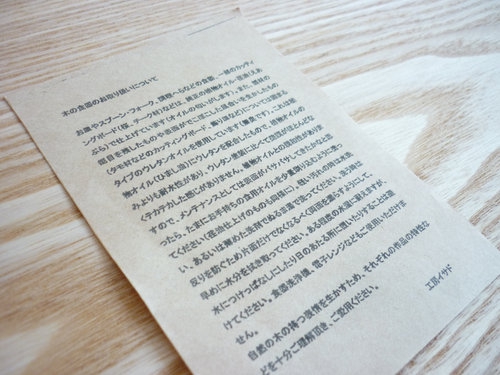 木の食器のお取り扱いについて
お皿やスプーン・フォーク、調理へらなどの食器、一部のカッティ
ングボード(桜、チーク材)などは、純正の植物オイル・荏油(えあ
ぶら)で仕上げています(オイルの匂いがします)。また、儀材の
(タモ材などのカッティングボード、彫り皿など)については固まる
タイプのウレタンオイルを使用しています(無臭です)。これは植
物オイル(ひまし油)にウレタンを配合したもので、植物のオイルの
みよりも耐水性があり、ウレタン塗装に比べて皮膜がほとんどな
くテカテカした感じがありません。植物オイルとの相性があります
ので、メンテナンスとしては表面がパサパサしてきたかなと思
ったら、たまにお手持ちの食用オイルを少量塗り込むように塗っ
てください(荏油仕上げのものも同様に)。軽い汚れの時は水洗
い、あるいは薄めた洗剤でぬるま湯で洗ってください。洗う時は
反りを防ぐため片面だけでなくなるべく両面を濡らすようにして、
早めに水分を拭き取ってください。ある程度の水濡れに耐えますが、
水につけっぱなしにしたり日のあたる所に置いたりすることは避
けてください。食器洗浄機、電子レンジなどもご使用いただけま
せん。
自然の木の持つ表情を生かすため、それぞれの作品の特性な
どを十分ご理解頂き、ご愛用ください。
工房イサド